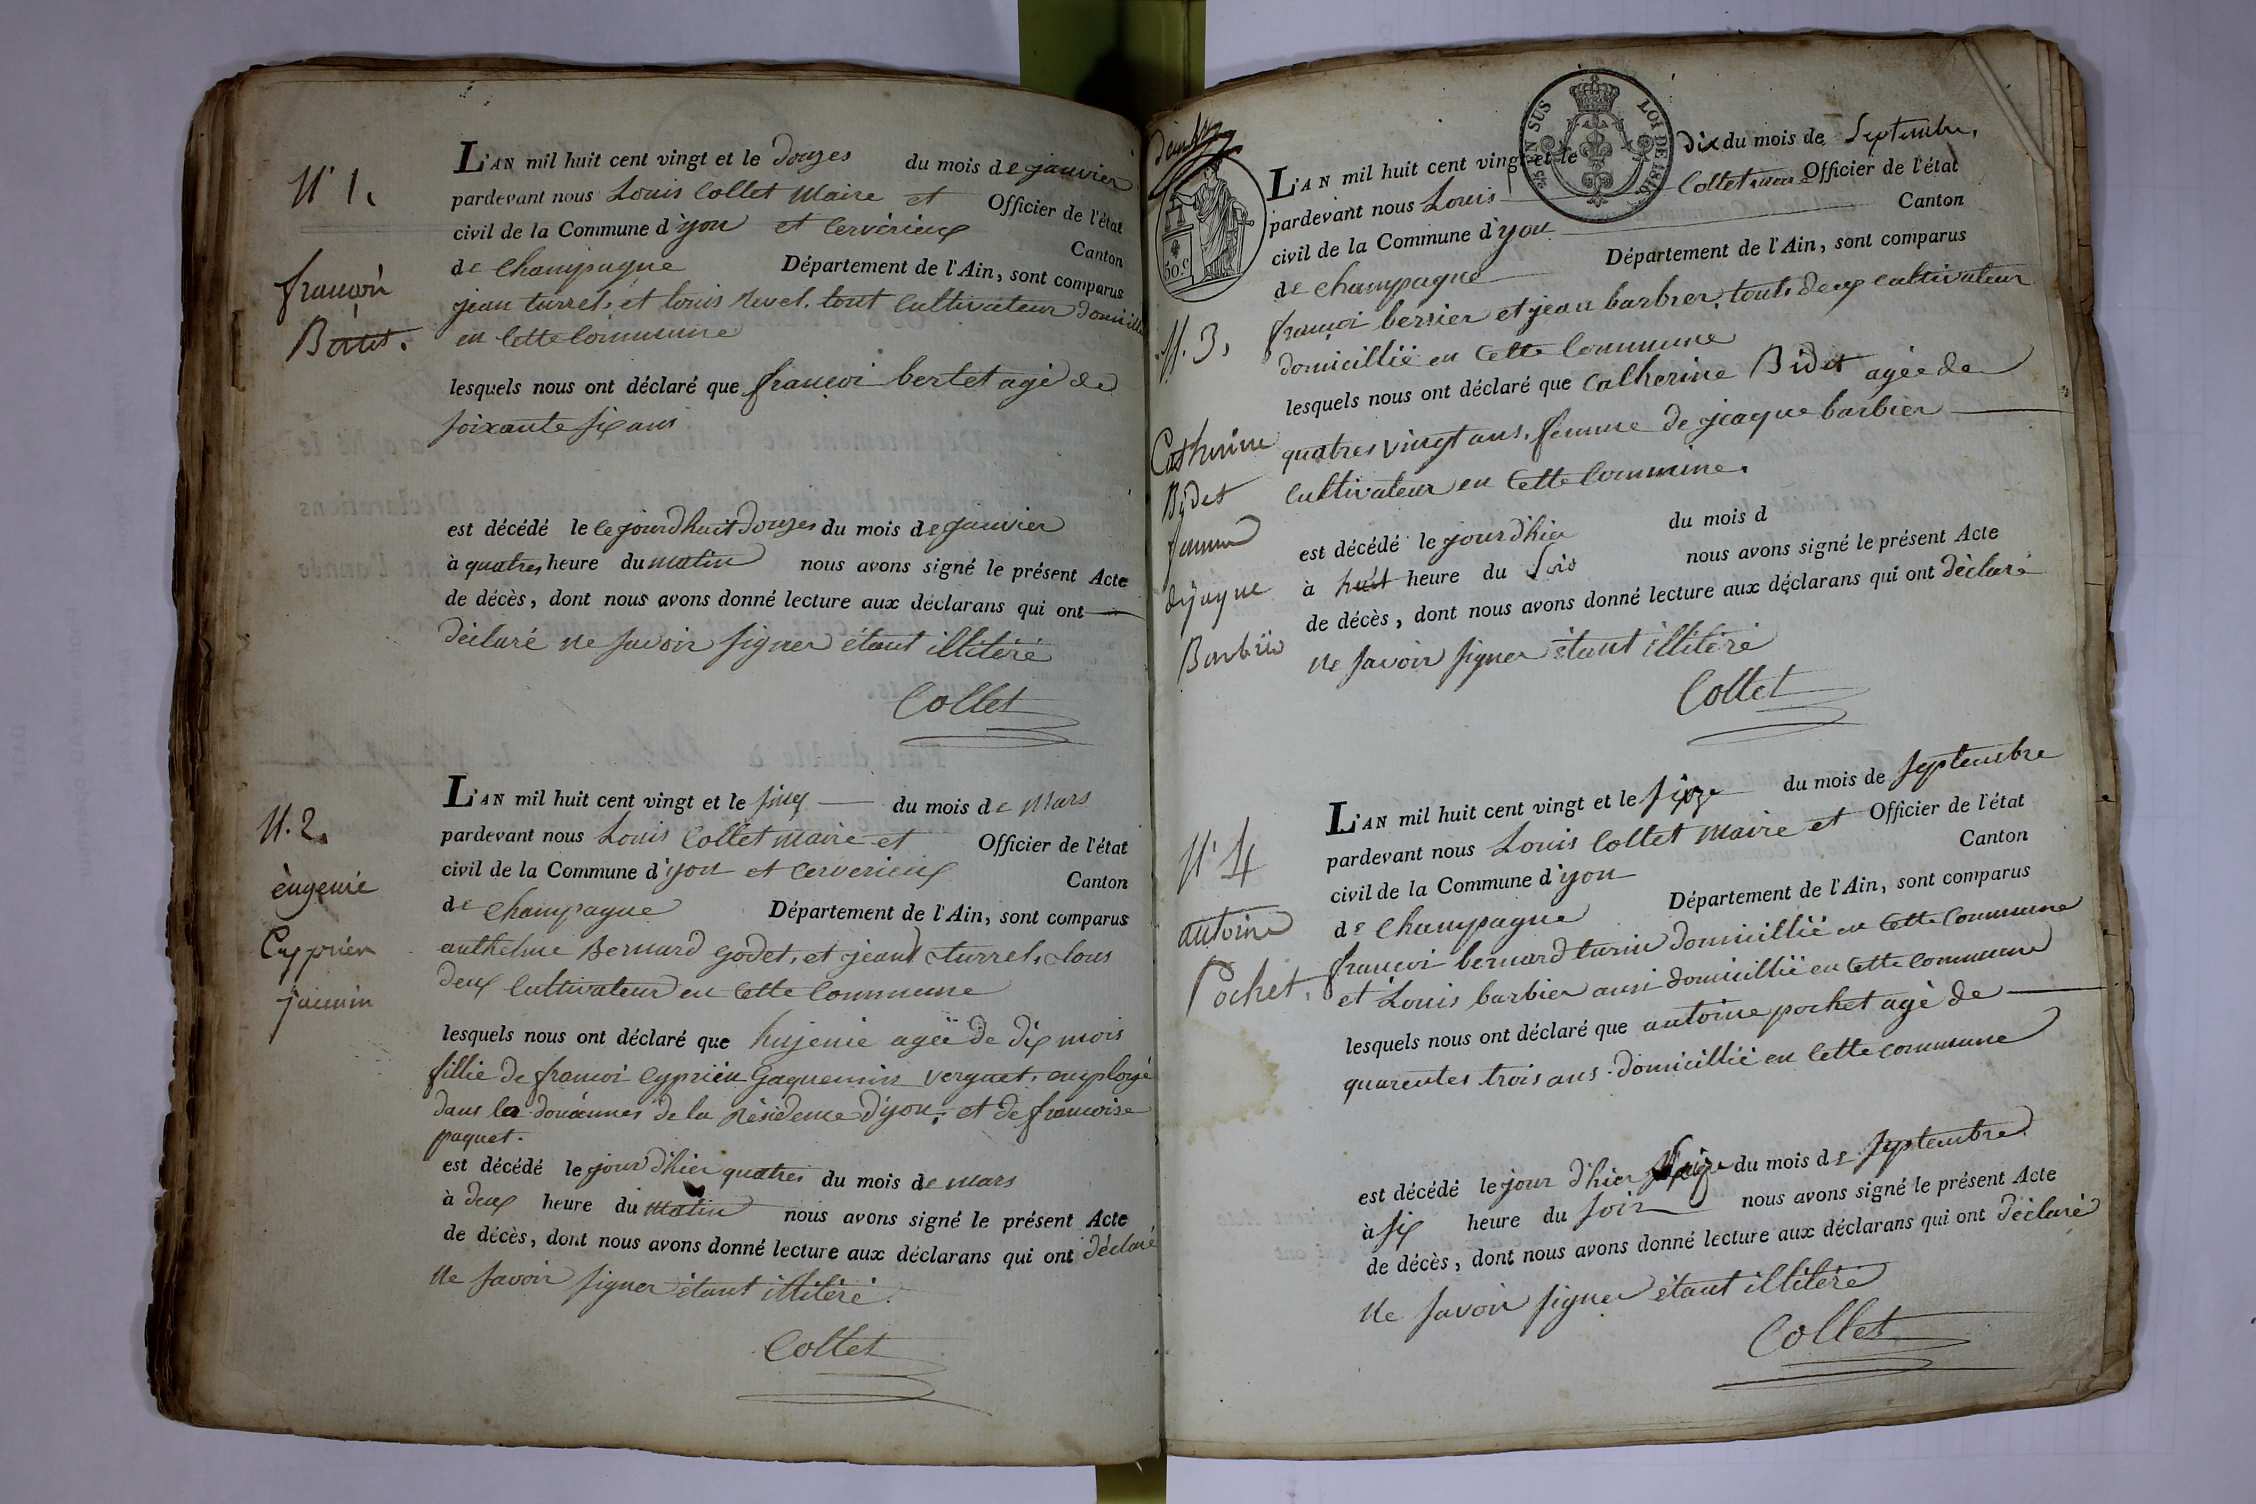 N° 1.
françoi
Bertet.
L'AN mil huit cent vingt et le douzes du mois de janvier
pardevant nous Louis Collet Maire et Officier de l'état
civil de la Commune d'yon et Cervérieux Canton
de Champagne Département de l'Ain, sont comparus
jean turrel, et louis Revel, tout Cultivateur domicillié
en Cette Commune
lesquels nous ont déclaré que françoi bertet agé de
soixante six ans
est décédé le ce jourdhuit douzes du mois de janvier
à quatres heure du matin nous avons signé le présent Acte
de décès, dont nous avons donné lecture aux déclarans qui ont
déclaré ne savoir signer étant illitéré
Collet
N. 2.
èugenie
Cypprien
L'AN mil huit cent vingt et le sinq du mois de Mars
pardevant nous Louis Collet Maire et Officier de l'état
civil de la Commune d'yon et Cervérieux Canton
de Champagne Département de l'Ain, sont comparus
anthelme Bernard godet, et jean turrel, tous
deux Cultivateur en Cette Commune
lesquels nous ont déclaré que hujenie ageé de dix mois
fillie de françoi Cyprien Gaquemin verguet, employé
dans les douannes de la Résidence D'yon, et de françoise
paquet.
est décédé le jour d'hier quatres du mois de mars
à deux heure du Matin nous avons signé le présent Acte
de décès, dont nous avons donné lecture aux déclarans qui ont déclaré
Ne savoir signer étant illitéré.
Collet
50.c
25 EN SUS
LOI DE 1816
N. 3.
Catherine
Bidet
femme
djaque
Barbier
L'AN mil huit cent vingt et le dix du mois de Septembre,
pardevant nous Louis Collet maire Officier de l'état
civil de la Commune d'yon Canton
de Champagne Département de l'Ain, sont comparus
françoi bernier et jean barbier, touts deux cultivateur
domicillié en Cette Commune
lesquels nous ont déclaré que Catherine Bidet agée de
quatres vingt ans, femme de jeaque barbier
Cultivateur en Cette Commune.
est décédé le jour d'hier du mois d
à huit heure du Soir nous avons signé le présent Acte
de décès, dont nous avons donné lecture aux déclarans qui ont déclaré
Ne savoir signer étant illitéré
Collet
N° 4
antoine
Pochet.
L'AN mil huit cent vingt et le sixze du mois de Septembre
pardevant nous Louis Collet Maire et Officier de l'état
civil de la Commune d'yon Canton
de Champagne Département de l'Ain, sont comparus
françoi bernard turin domicillié en Cette Commune
et Louis barbier ausi domicillié en Cette commune
lesquels nous ont déclaré que antoine pochet agé de
quarentes trois ans domicillié en Cette commune
est décédé le jour d'hier du mois de Septembre
à six heure du soir nous avons signé le présent Acte
de décès, dont nous avons donné lecture aux déclarans qui ont déclaré
Ne savoir signer étant illitéré
Collet